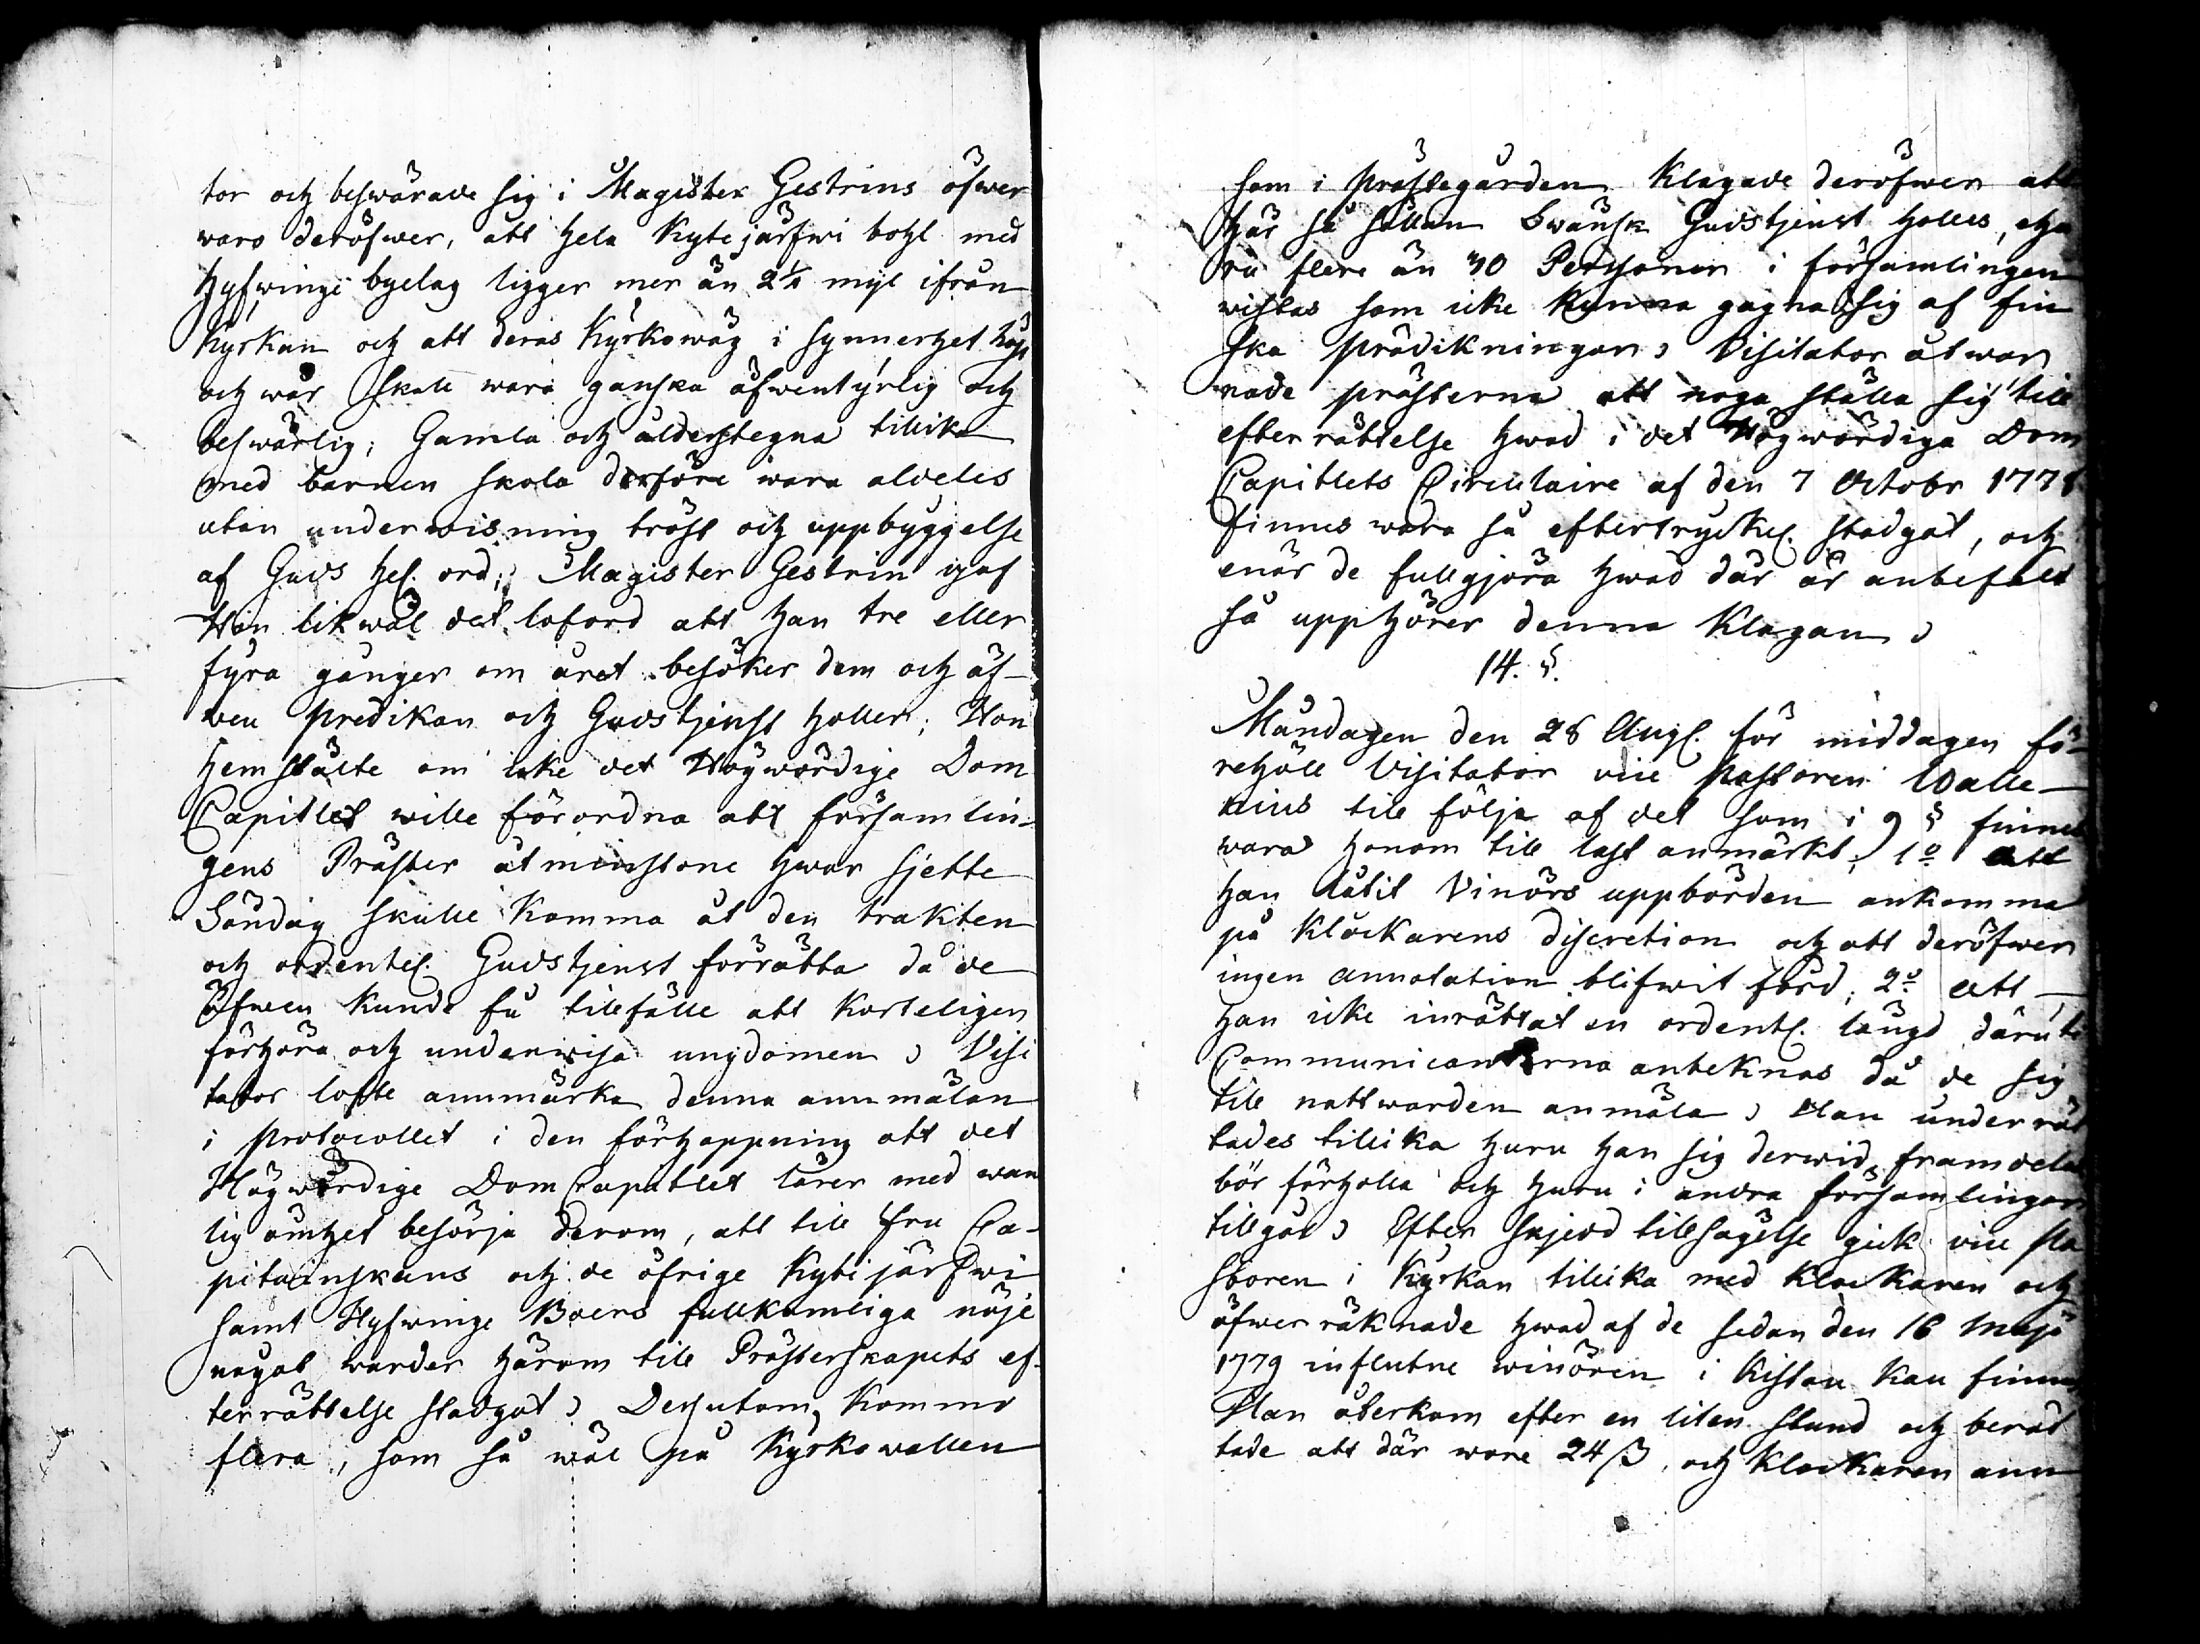 tor och beswärade sig i Magister Gestrins öfwer
waro deröfwer, att hela Kytejärfwi bohl med
Hyfwinge byelag ligger mer än 2 1/4 mijl ifrån
Kyrkan och att deras Kyrkowäg i synnerhet höst
och wår skall wara ganska äfwentyrlig och
beswärlig; Gamla och ålderstegna tillika
med barnen skola derföre wara aldeles
utan underwisning tröst och uppbyggelse
af Guds hel. ord; Magister Gestrin gaf
Hon likwäl det loford att han tre eller
fyra gånger om året besöker dem och äf-
wen predikan och Gudstjenst holler; Hon
hemstälte om icke det Högwördige Dom
Capitlet wille förordna att församlin-
gens Präster åtminstone hwar sjette
Söndag skulle komma åt den trakten
och ordentel. Gudstjenst förrätta då de
äfwen kunde få tillfälle att korteligen
förhöra och underwisa ungdomen. Visi
tator lofte annmärka denna annmälan
i protocollet i den förhoppning att det
Högwördige Dom Capitlet lärer med wan
lig ömhet besörja derom, att till Fru Ca-
pitainskans och de öfrige Kytijärfwi
samt Hyfwinge Boers fullkomliga nöje
något warder härom till Prästerskapets ef-
terrättelse stadgat. Dessutom kommo
flera, som så wäl på Kyrkowallen
som i prästegården klagade deröfwer att
här så sällan Swänsk Gudstjenst holles, eha
ru flere än 30 Personer i församlingen
wistas som icke kunna gagna sig af fin
ska prädikningar. Visitator åtwar
nade prästerna att noga ställa sig till
efterrättelse hwad i det Högwördiga Dom
Capitlets Circulaire af den 7 Octobr 1778
finnes wara så eftertryckel. stadgat, och
enär de fullgjöra hwad där är anbefalt
så upphörer denna klagan.
14. §.
Måndagen den 28 Aug. för middagen fö-
rehöll Visitator vice pastoren Walle-
nius till följe af det som i 9 § finnes
wara honom till last anmärkt, 1o att
han låtit Vinörs uppbörden ankomma
på Klåckarens discretion och att deröfwer
ingen annotation blifwit förd; 2o att
han icke inrättat en ordentl. längd däruti
Communicanterna anteknas då de sig
till nattwarden anmäla. Han underrät
tades tillika huru han sig derwid framdeles
bör förholla och huru i andra församlingar
tillgår. Efter skjedd tillsägelse gick vice pa
storen i Kyrkan tillika med Klockaren och
öfwerräknade hwad af de sedan den 16 Maji
1779 influtne winören i Kistan kan finnas
Han återkom efter en liten stund och berät
tade att där wore 24 ß, och Klockaren ann